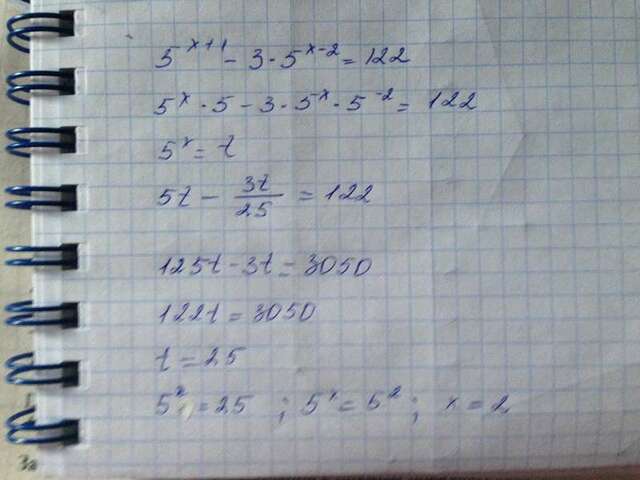 5^{x+1} - 3 · 5^{x-2} = 122
5^x · 5 - 3 · 5^x · 5^{-2} = 122
5^x = t
5t - \frac{3t}{25} = 122
125t - 3t = 3050
122t = 3050
t = 25
5^x = 25 ; 5^x = 5^2 ; x = 2
За